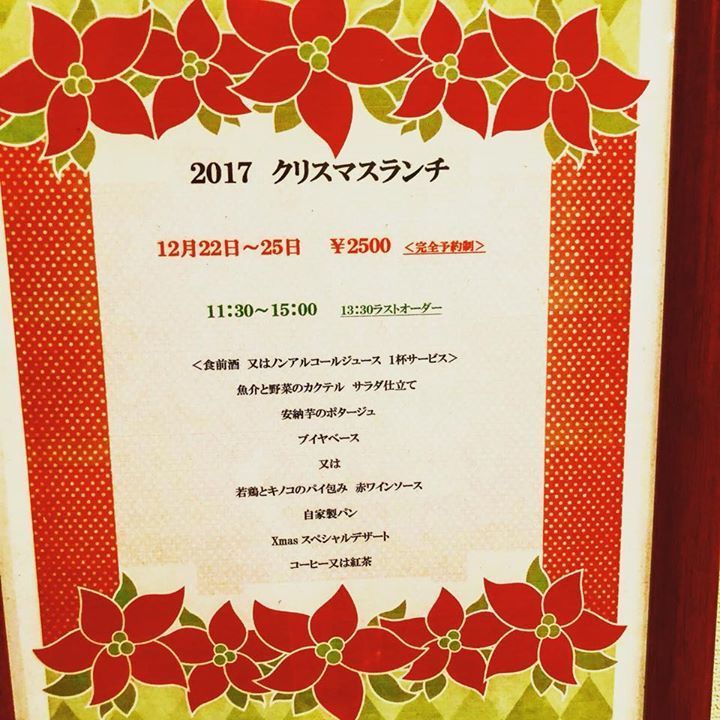 2017 クリスマスランチ
12月22日～25日 ￥2500 ＜完全予約制＞
11:30～15:00 13:30ラストオーダー
＜食前酒 又はノンアルコールジュース 1杯サービス＞
魚介と野菜のカクテル サラダ仕立て
安納芋のポタージュ
ブイヤベース
又は
若鶏とキノコのパイ包み 赤ワインソース
自家製パン
Xmasスペシャルデザート
コーヒー又は紅茶